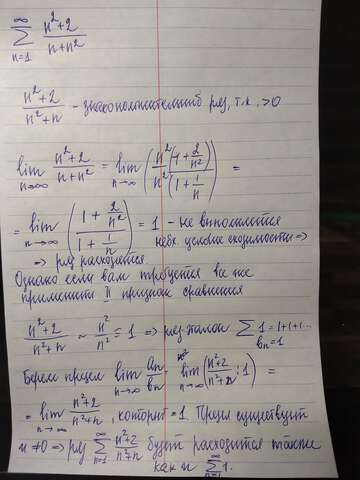 ∞
∑ n²+2 / n+n²
n=1
n²+2 / n²+n - знакоположительный ряд, т.к. >0
lim n→∞ n²+2 / n+n² = lim n→∞ ( n² (1+ 2/n²) / n² (1+ 1/n) ) =
= lim n→∞ ( 1+ 2/n² / 1+ 1/n ) = 1 - не выполняется
необх. условие сходимости ⇒
⇒ ряд расходится
Однако если вам требуется все же
применить II признак сравнения
n²+2 / n²+n ~ n² / n² = 1 ⇒ ряд эталон ∑ 1 = 1+1+1...
bn = 1
Берем предел lim n→∞ an / bn = lim n→∞ ( n²+2 / n²+n : 1 ) =
= lim n→∞ n²+2 / n²+n , который = 1. Предел существует
и ≠0 ⇒ ряд ∑ n=1 ∞ n²+2 / n²+n будет расходится также
как и ∑ n=1 ∞ 1.